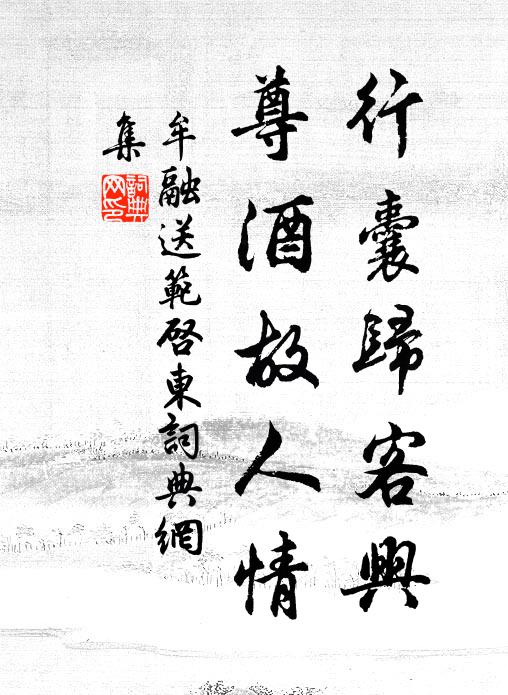 行囊歸客興
尊酒故人情
牟融送範啓東詞典網
集
詞典
网印